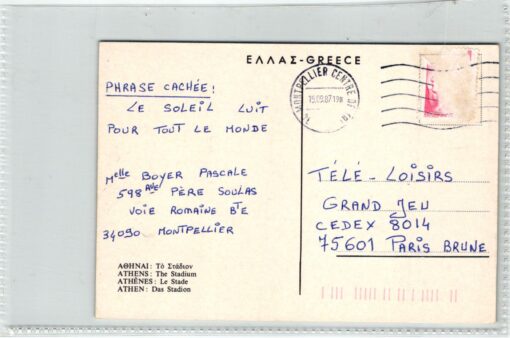 ΕΛΛΑΣ-GREECE
PHRASE CACHÉE!
LE SOLEIL LUIT
POUR TOUT LE MONDE
Melle BOYER PASCALE
598 Rue PÈRE SOULAS
VOIE ROMAINE Bte
34090 MONTPELLIER
ΑΘΗΝΑΙ: Τὸ Στάδιον
ATHENS: The Stadium
ATHÈNES: Le Stade
ATHEN: Das Stadion
MONTPELLIER CENTRE
15.09.87 19H
TÉLÉ-LOISIRS
GRAND JEU
CEDEX 8014
75601 PARIS BRUNE